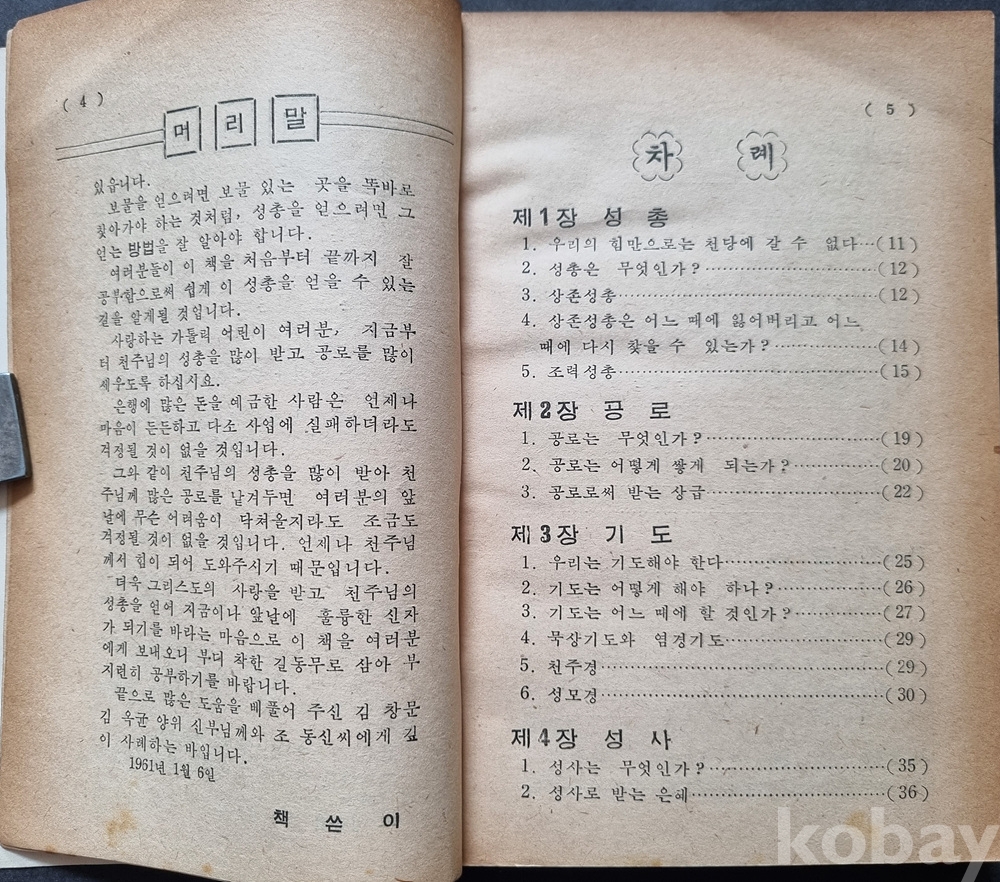 ( 4 )
머 리 말
있읍니다.
보물을 얻으려면 보물 있는 곳을 똑바로
찾아가야 하는 것처럼, 성총을 얻으려면 그
얻는 방법을 잘 알아야 합니다.
여러분들이 이 책을 처음부터 끝까지 잘
공부함으로써 쉽게 이 성총을 얻을 수 있는
길을 알게될 것입니다.
사랑하는 가톨릭 어린이 여러분, 지금부
터 천주님의 성총을 많이 받고 공로를 많이
세우도록 하십시요.
은행에 많은 돈을 예금한 사람은 언제나
마음이 든든하고 다소 사업에 실패하더라도
걱정될 것이 없을 것입니다.
그와 같이 천주님의 성총을 많이 받아 천
주님께 많은 공로를 남겨두면 여러분의 앞
날에 무슨 어려움이 닥쳐올지라도 조금도
걱정될 것이 없을 것입니다. 언제나 천주님
께서 힘이 되어 도와주시기 때문입니다.
더욱 그리스도의 사랑을 받고 천주님의
성총을 얻어 지금이나 앞날에 훌륭한 신자
가 되기를 바라는 마음으로 이 책을 여러분
에게 보내오니 부디 착한 길동무로 삼아 부
지련히 공부하기를 바랍니다.
끝으로 많은 도움을 베풀어 주신 김 창문
김 옥균 양위 신부님께와 조 동신씨에게 깊
이 사례하는 바입니다.
1961년 1월 6일
책 쓴 이
( 5 )
차 례
제1장 성 총
1. 우리의 힘만으로는 천당에 갈 수 없다…(11)
2. 성총은 무엇인가?……………………(12)
3. 상존성총………………………………(12)
4. 상존성총은 어느 때에 잃어버리고 어느
때에 다시 찾을 수 있는가?…………(14)
5. 조력성총………………………………(15)
제2장 공 로
1. 공로는 무엇인가?……………………(19)
2. 공로는 어떻게 쌓게 되는가?………(20)
3. 공로로써 받는 상급…………………(22)
제3장 기 도
1. 우리는 기도해야 한다………………(25)
2. 기도는 어떻게 해야 하나?…………(26)
3. 기도는 어느 때에 할 것인가?………(27)
4. 묵상기도와 염경기도………………(29)
5. 천주경…………………………………(29)
6. 성모경…………………………………(30)
제4장 성 사
1. 성사는 무엇인가?……………………(35)
2. 성사로 받는 은혜……………………(36)
kobay